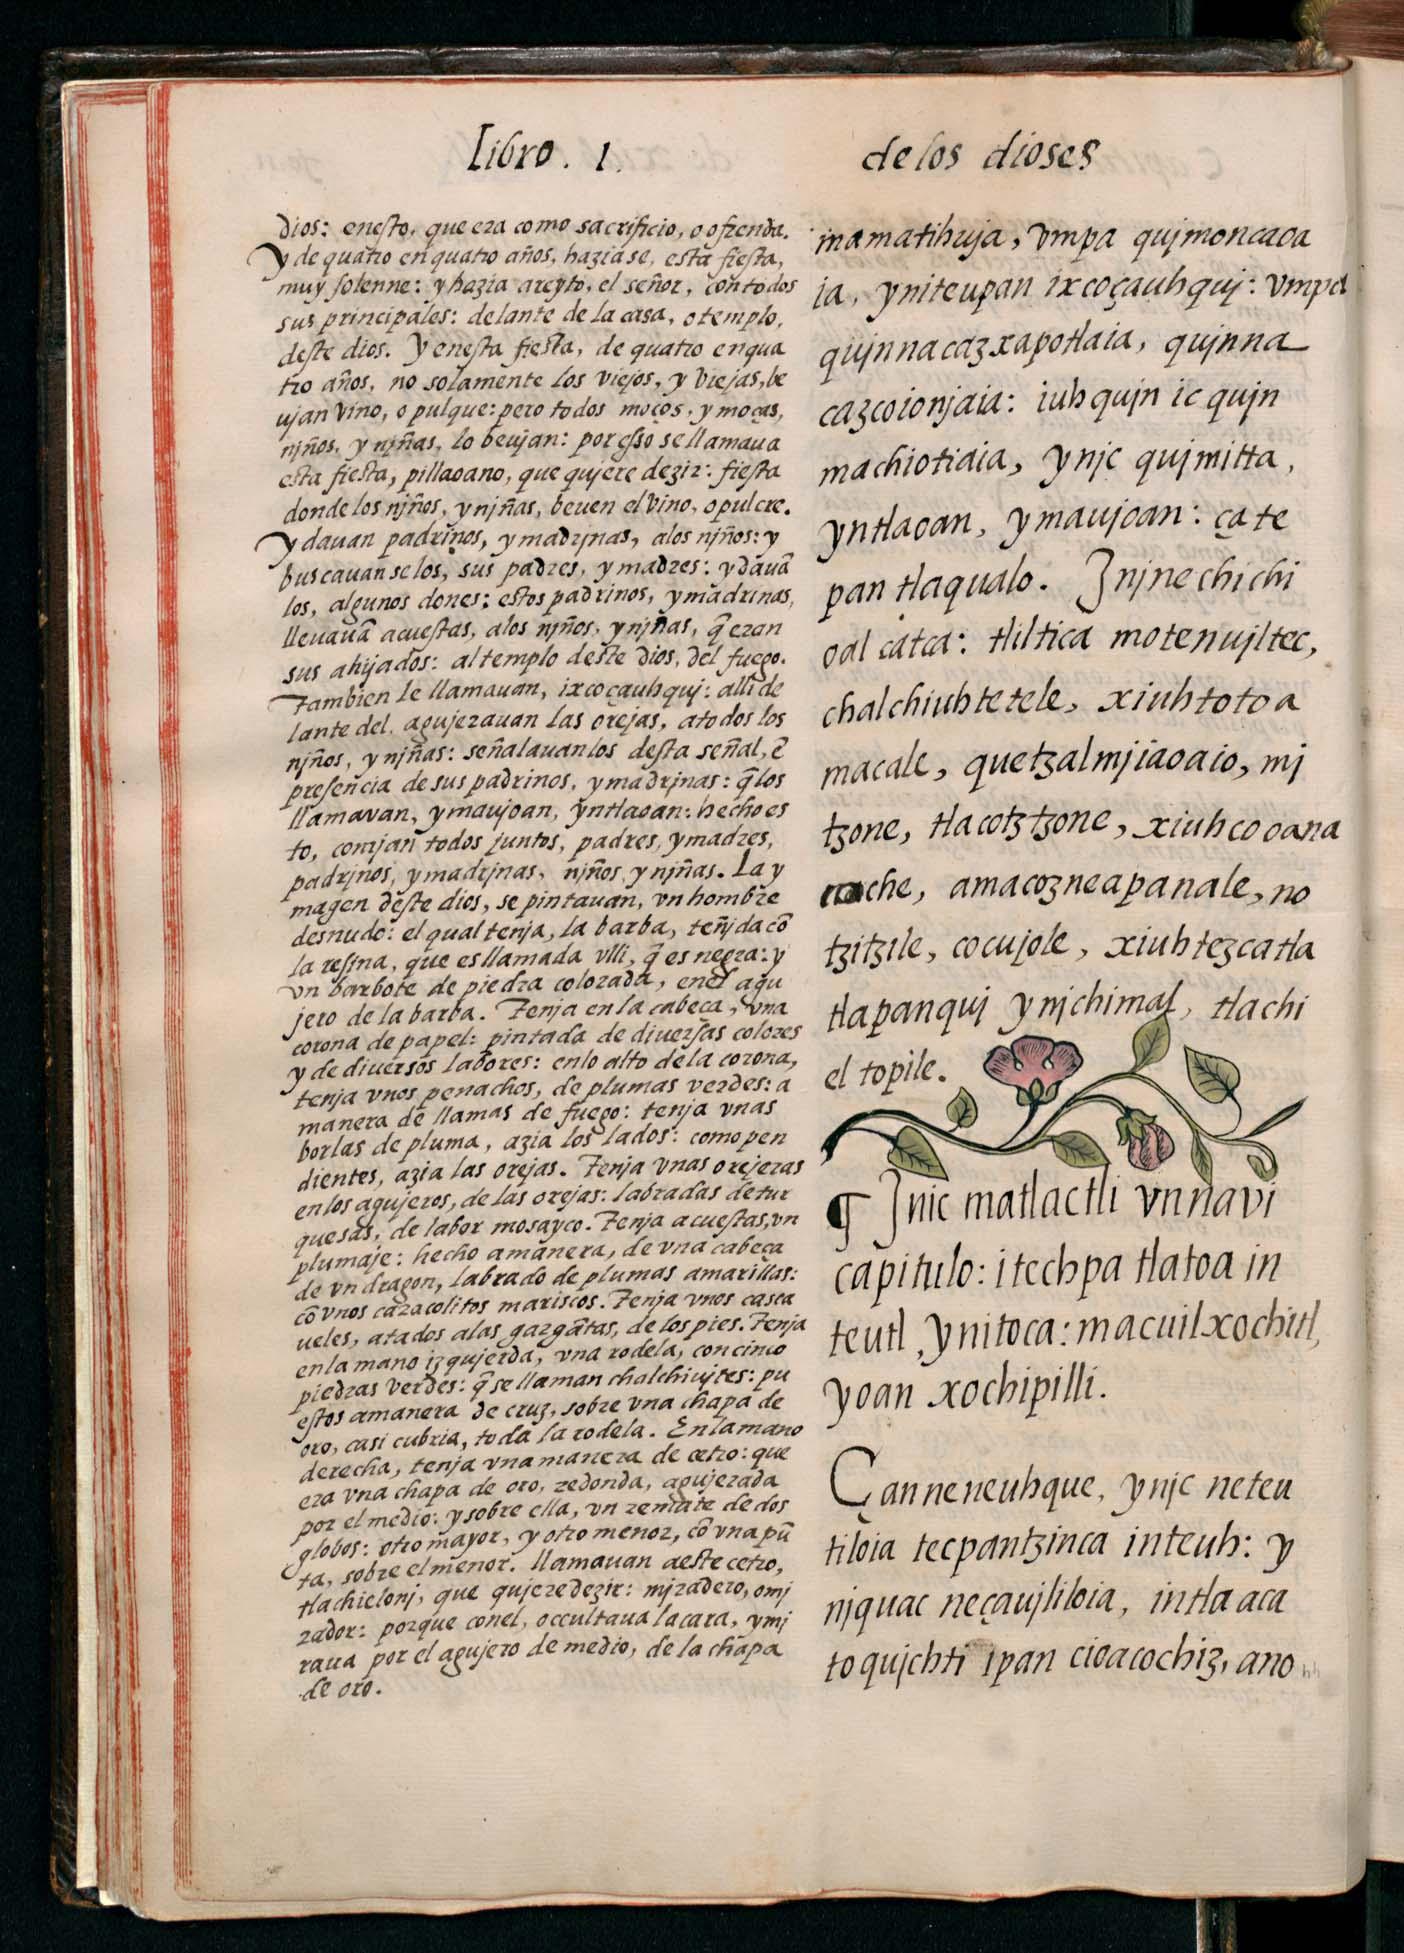 Libro. 1. de los dioses
dios: enesto, que era como sacrificio, o ofrenda.
Y de quatro en quatro años, haziase, esta fiesta,
muy solenne: y hazia areyto, el señor, con todos
sus principales: delante de la casa, o templo,
deste dios. Y enesta fiesta, de quatro en qua
tro años, no solamente los viejos, y viejas, be
ujan vino, o pulque: pero todos moços, y moças,
njños, y njñas, lo beujan: por esso se llamaua
esta fiesta, pillaoano, que qujere dezir: fiesta
donde los njños, y njñas, beuen el vino, o pulcre.
Y dauan padrinos, y madrjnas, alos njños: y
buscauanselos, sus padres, y madres: y dauã
los, algunos dones: estos padrinos, y madrinas,
lleuauã acuestas, alos njños, y njñas, q̃ eran
sus ahijados: al templo deste dios, del fuego.
Tambien le llamauan, ixcoçauhquj: alli de
lante del, agujerauan las orejas, atodos los
njños, y njñas: señalauanlos desta señal, ẽ
presencia de sus padrinos, y madrjnas: q̃ los
llamavan, ymaujoan, yntlaoan: hecho es
to, comjan todos juntos, padres, y madres,
padrjnos, y madrjnas, njños, y njñas. La y
magen deste dios, se pintauan, vn hombre
desnudo: el qual tenja, la barba, teñjda cõ
la resjna, que es llamada vlli, q̃ es negra: y
vn barbote de piedra colorada, enel agu
jero de la barba. Tenja en la cabeça, vna
corona de papel: pintada de diuersas colores
y de diuersos labores: enlo alto dela corona,
tenja vnos penachos, de plumas verdes: a
manera de llamas de fuego: tenja vnas
borlas de pluma, azia los lados: como pen
dientes, azia las orejas. Tenja vnas orejeras
en los agujeros, de las orejas: labradas de tur
quesas, de labor mosayco. Tenja acuestas, vn
plumaje: hecho a manera, de vna cabeça
de vn dragon, labrado de plumas amarillas:
cõ vnos caracolitos mariscos. Tenja vnos casca
ueles, atados alas gargãtas, de los pies. Tenja
en la mano izqujerda, vna rodela, con cinco
piedras verdes: q̃ se llaman chalchiujtes: pu
estos amanera de cruz, sobre vna chapa de
oro, casi cubria, toda la rodela. En la mano
derecha, tenja vna manera de cetro: que
era vna chapa de oro, redonda, agujerada
por el medio: y sobre ella, vn remate de dos
globos: otro mayor, y otro menor, cõ vna pũ
ta, sobre el menor. llamauan aeste cetro,
tlachielonj, que qujere dezir: mjradero, o mj
rador: porque conel, occultaua la cara, y mj
raua por el agujero de medio, de la chapa
de oro.
inamatihuja, vmpa qujmoncaoa
ia, yniteupan ixcoçauhquj: vmpa
qujnnacazxapotlaia, qujnna
cazcoionjaia: iuhqujn ic qujn
machiotiaia, ynjc qujmitta,
yntlaoan, ymaujoan: ça te
pan tlaqualo. Jnjnechichi
oal catca: tliltica motenujltec,
chalchiuhtetele, xiuhtotoa
macale, quetzalmjiaoaio, mj
tzone, tlacotztzone, xiuhcooana
oche, amacozneapanale, no
tzitzile, cocujole, xiuhtezcatla
tlapanquj ynjchimal, tlachi
el topile.
¶ Jnic matlactli vnnavi
capitulo: itechpa tlatoa in
teutl, ynitoca: macuilxochitl,
yoan xochipilli.
Çanneneuhque, ynjc neteu
tiloia tecpantzinca inteuh: y
njquac neçaujliloia, intla aca
toqujchti ipan cioacochiz, ano